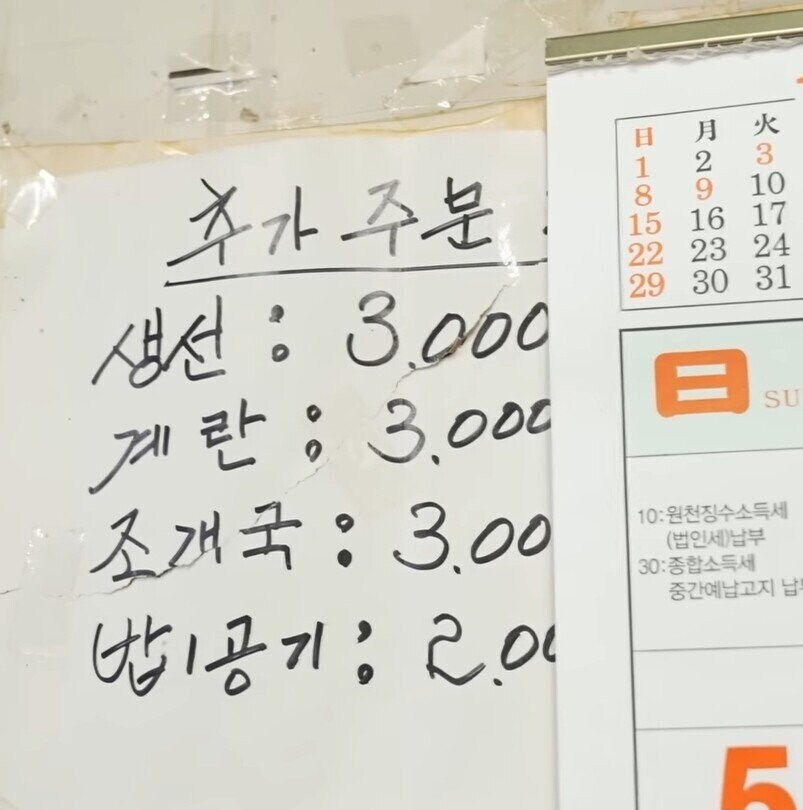 추가 주문
생선 : 3.000
계란 : 3.000
조개국 : 3.00
밥1공기 : 2.00
日 月 火
1 2 3
8 9 10
15 16 17
22 23 24
29 30 31
日 SU
10:원천징수소득세
(법인세)납부
30:종합소득세
중간예납고지 납
5